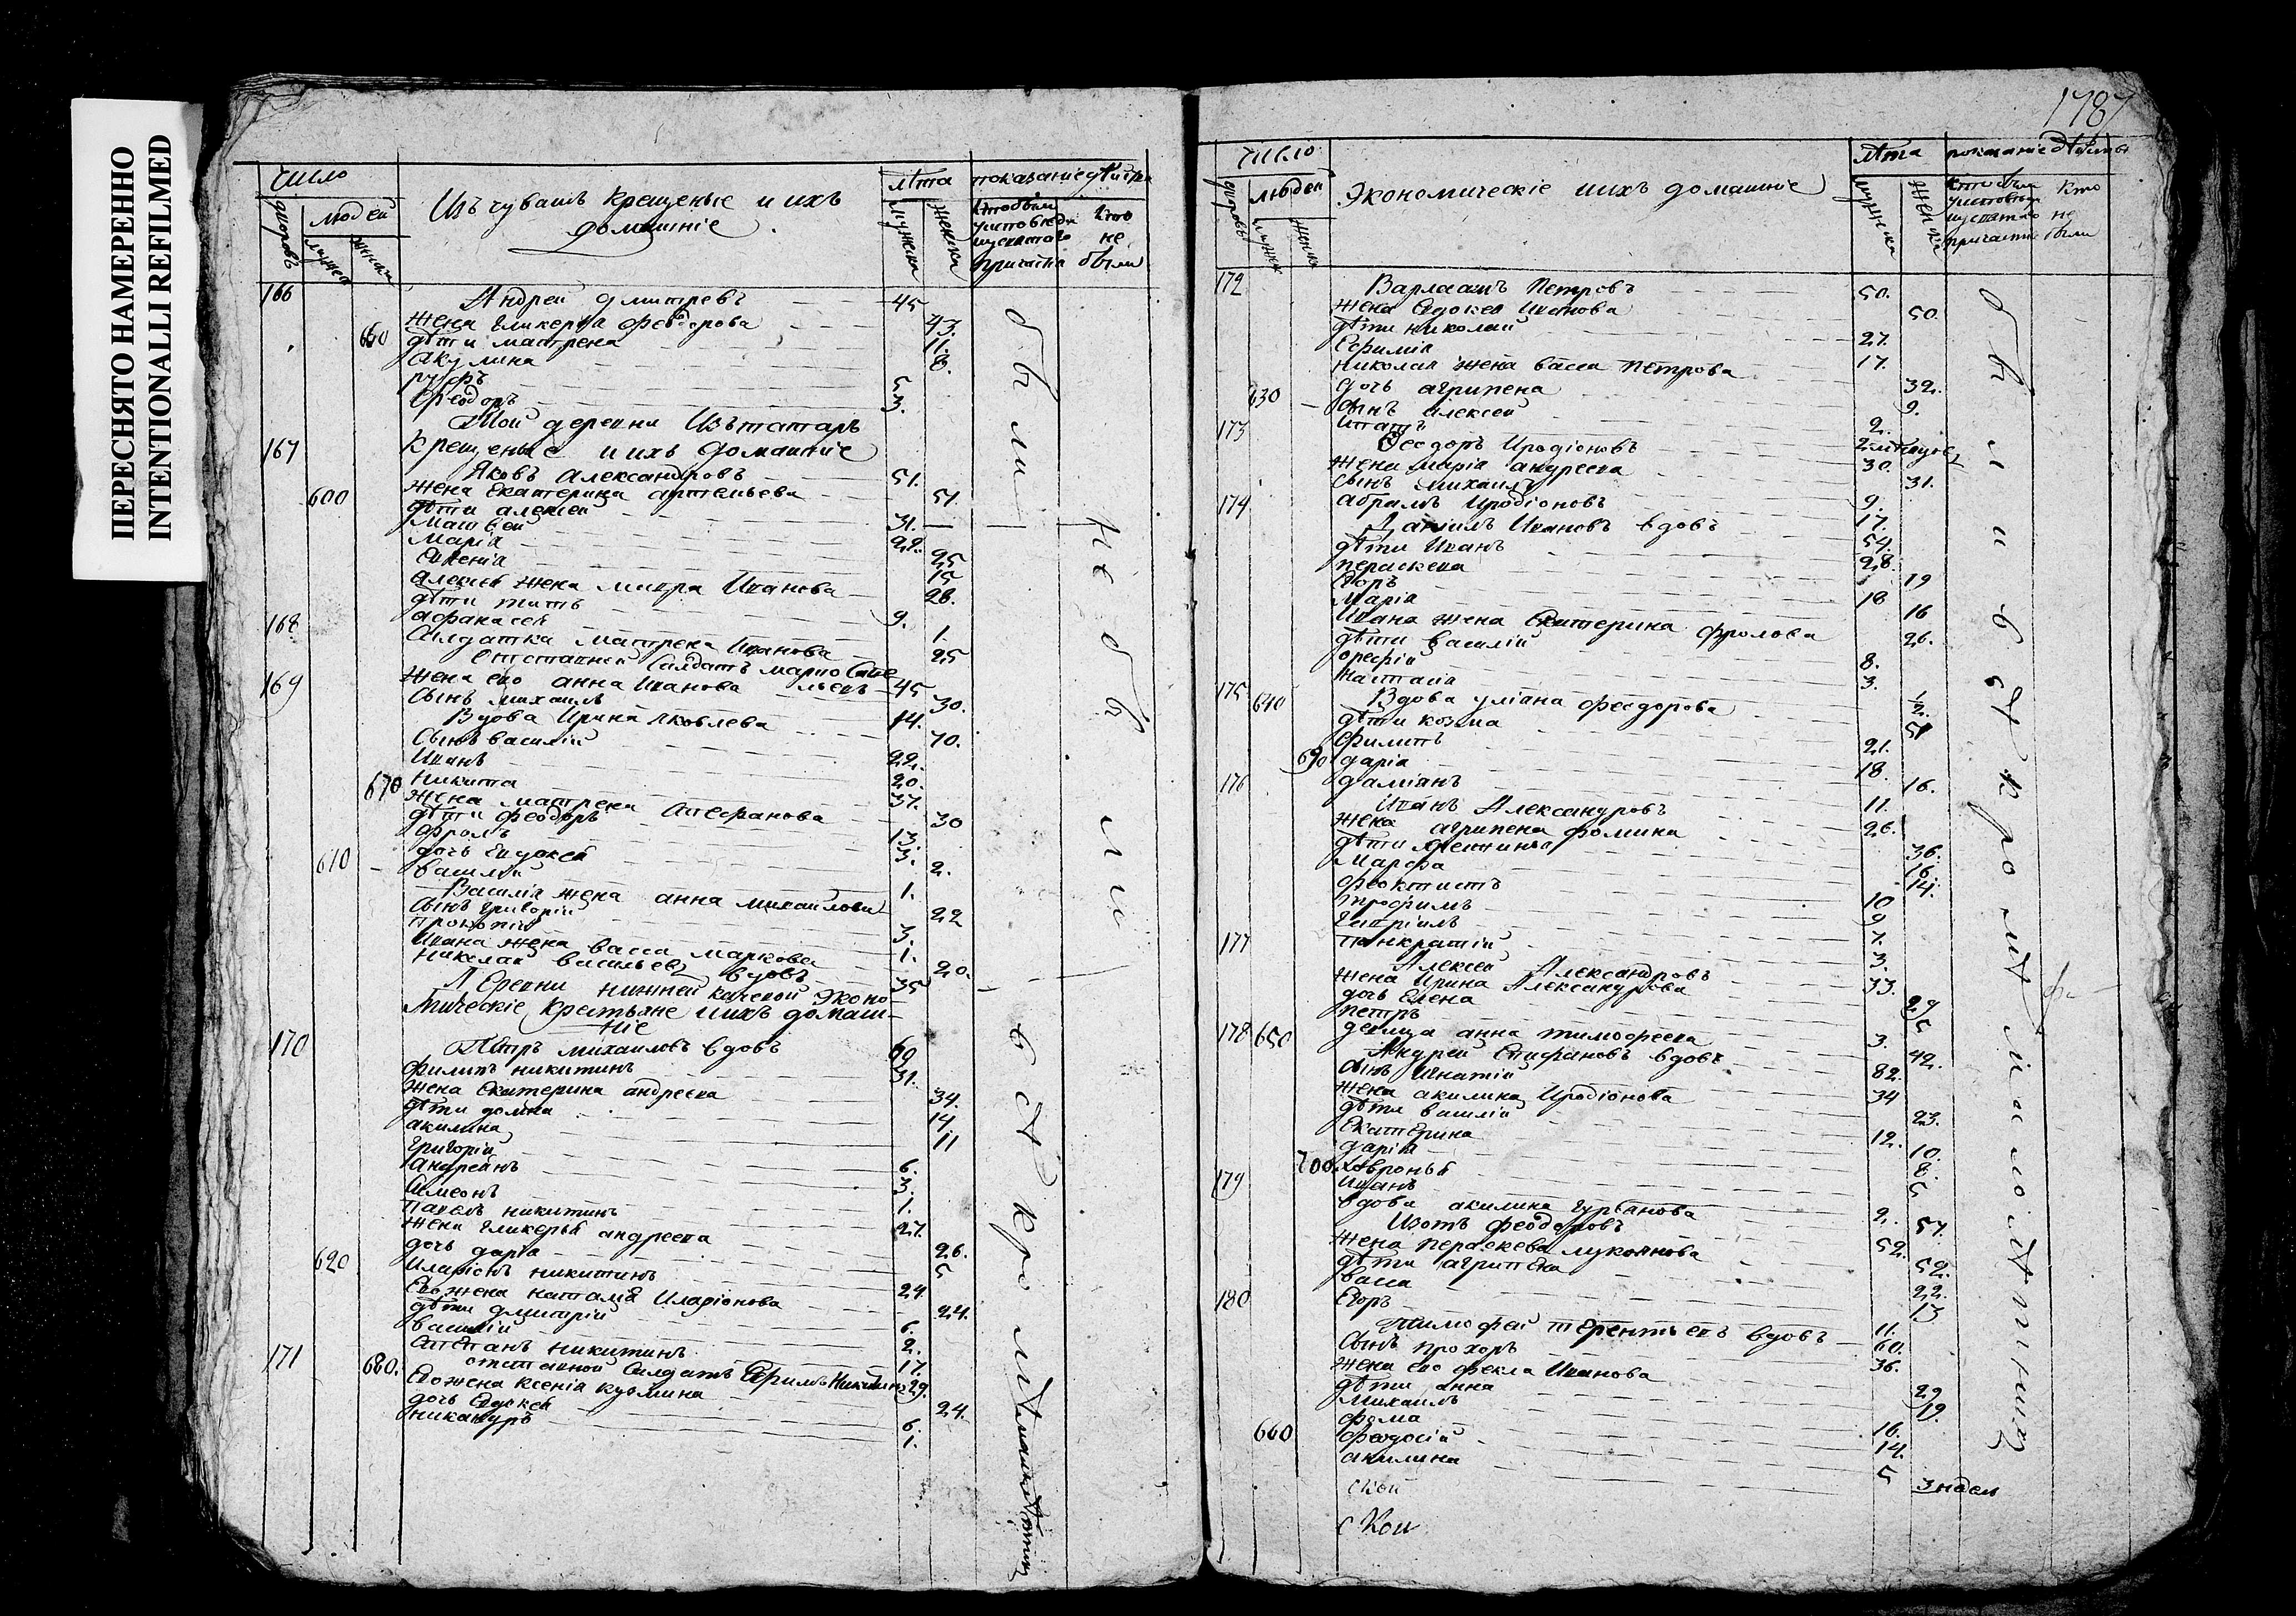 ПЕРЕСНЯТО НАМЕРЕННО
INTENTIONALLI REFILMED
число
дворовъ
людей
Изъ чувашъ крещеные и ихъ
домашніе
лѣта
мужска
женска
показаніе дѣйства
кто
не
были
166
Андрей дмитревъ 45
жена гликерїа феодорова 43.
660 дѣти матрена 11.
акулина 8.
5
Феодоръ 3.
Той деревни Изъ татаръ
167 крещеные и ихъ домашніе
Яковъ Александровъ 51.
жена Екатерина артемьева 51.
600 дѣти алексей 31.
матвей 22.
марїа 25
Евгенїа 15
алексея жена мавра Иванова 28.
дѣти титъ 9.
афанасей 1.
168 Салдатка матрена Иванова 25
Отставней Салдатъ марко 45
жена ево анна Иванова 30.
169 Сынъ михаилъ 14.
Вдова Ирина Яковлева 70.
Сынъ василій 22.
Иванъ 20.
670 никита 37.
жена матрена Стефанова 30
дѣти феодоръ 13.
фролъ 3.
дочь Евдокея 2.
610 василій 1.
Василїа жена анна михаилова 22
Сынъ григорій 3.
прокопій 1.
Ивана жена васса маркова 20.
николай васильевъ вдовъ 35
Деревни нижней качеевой Эконо-
мическіе крестьяне и ихъ домаш-
ніе
170 Петръ михаиловъ вдовъ 60
филипъ никитинъ 31.
жена Екатерина андреева 34.
дѣти домна 14.
акилина 11
григорій 6.
андреянъ 3.
Симеонъ 1.
павелъ никитинъ 27.
жена гликерья андреева 26.
дочь дарїа 5
620 Иларіонъ никитинъ 24
Ево жена наталїа Иларіонова 24.
дѣти дмитрій 6.
василій 2.
Степанъ никитинъ 17.
171 отставной Салдатъ Ефимъ Никитинъ 29.
680. Ево жена ксенїа кузмина 24.
дочь Евдокея 6.
никаноръ 1.
были
не были
всѣ кромѣ малолѣтних
1787
число
дворовъ
людей
мужска
женска
Экономическіе и ихъ домашніе
лѣта
мужска
женска
показаніе дѣйства
кто
не
были
172 Варлаамъ Петровъ 50.
жена Евдокея Иванова 50.
дѣти николай 27.
Ефимїа 17.
николая жена васса петрова 32.
дочь агрипена 9.
630 Сынъ алексей 2.
173 Феодоръ Иродіоновъ 30.
жена марїа андреева 31.
сынъ михаилъ 9.
174 абрамъ Иродіоновъ 17.
Данилъ Ивановъ вдовъ 54.
дѣти Иванъ 28.
параскева 19
Егоръ 18
марїа 16
Ивана жена Екатерина фролова 26.
дѣти василій 8.
орефій 3.
настасїа 1/2.
175 640 Вдова улїана феодорова 51
дѣти козма 21.
филипъ 18.
690 дарїа 16.
176 дамїанъ 11.
Иванъ Александровъ 26.
жена агрипена фомина 36.
дѣти 16.
марфа 14.
феоктистъ 10
трофимъ 9
гавріилъ 7.
177 панкратій 3.
Алексей Александровъ 33.
жена Ирина Александрова 29
дочь Елена 5
петръ 3.
178 650 девица анна тимофеева 42.
Андрей Епифановъ вдовъ 82.
сынъ Игнатій 34
жена акилина Иродіонова 23.
дѣти василій 12.
Екатерина 10.
дарїа 8.
700. ховронья 5
179 Иванъ 2.
вдова акилина гурьанова 57.
Изотъ феодоровъ 52.
жена параскева лукоянова 52.
дѣти агрипена 22.
васса 13
180 Егоръ 11.
Тимофей терентьевъ вдовъ 60.
сынъ прохоръ 36.
жена ево фекла Иванова 29
дѣти анна 19.
михаилъ 16.
фома 14.
660 феодосій 5
акилина 3 недел
были всѣ кромѣ малолѣтних